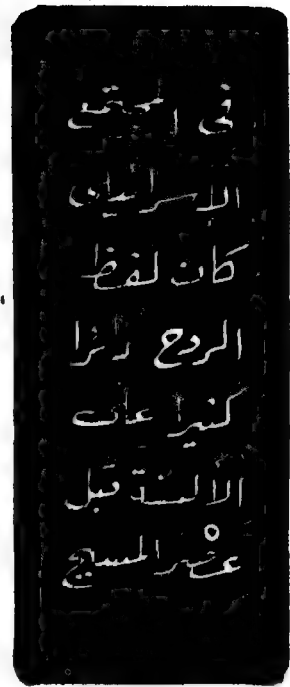 فى المجتمع
الإسرائيلى
كان لفظ
الروح دائرا
كثيرا على
الألسنة قبل
عصر المسيح